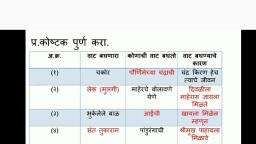 प्र.कोष्टक पुर्ण करा.
अ.क्र. वाट बघणारा कोणाची वाट बघतो वाट बघण्याचे
कारण
(१) चकोर पौर्णिमेच्या चंद्राची चंद्र किरण हेच
त्याचे जीवन
(२) लेक (मुलगी) माहेरचे बोलावणे
येणे दिवळीला
माहेरास जायला
मिळते
(३) भुकेलेले बाळ आईची खायला मिळेल
म्हणून
(४) संत तुकाराम पांडुरंगाची श्रीमुख पाहायला
मिळावे